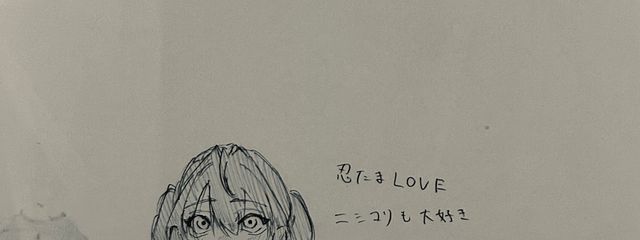 忍たまLOVE
ニシコリも大好き